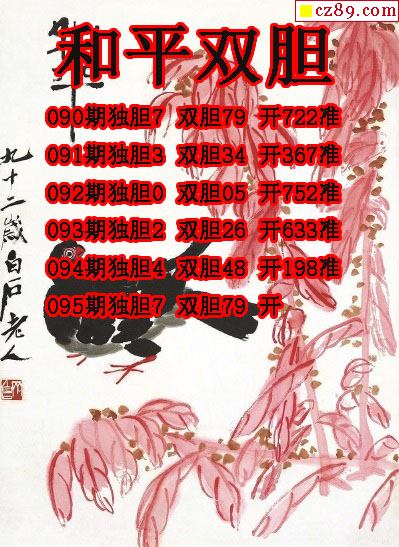 cz89.com
和平双胆
090期独胆7 双胆79 开722准
091期独胆3 双胆34 开367准
092期独胆0 双胆05 开752准
093期独胆2 双胆26 开633准
094期独胆4 双胆48 开198准
095期独胆7 双胆79 开
九十二岁白石老人